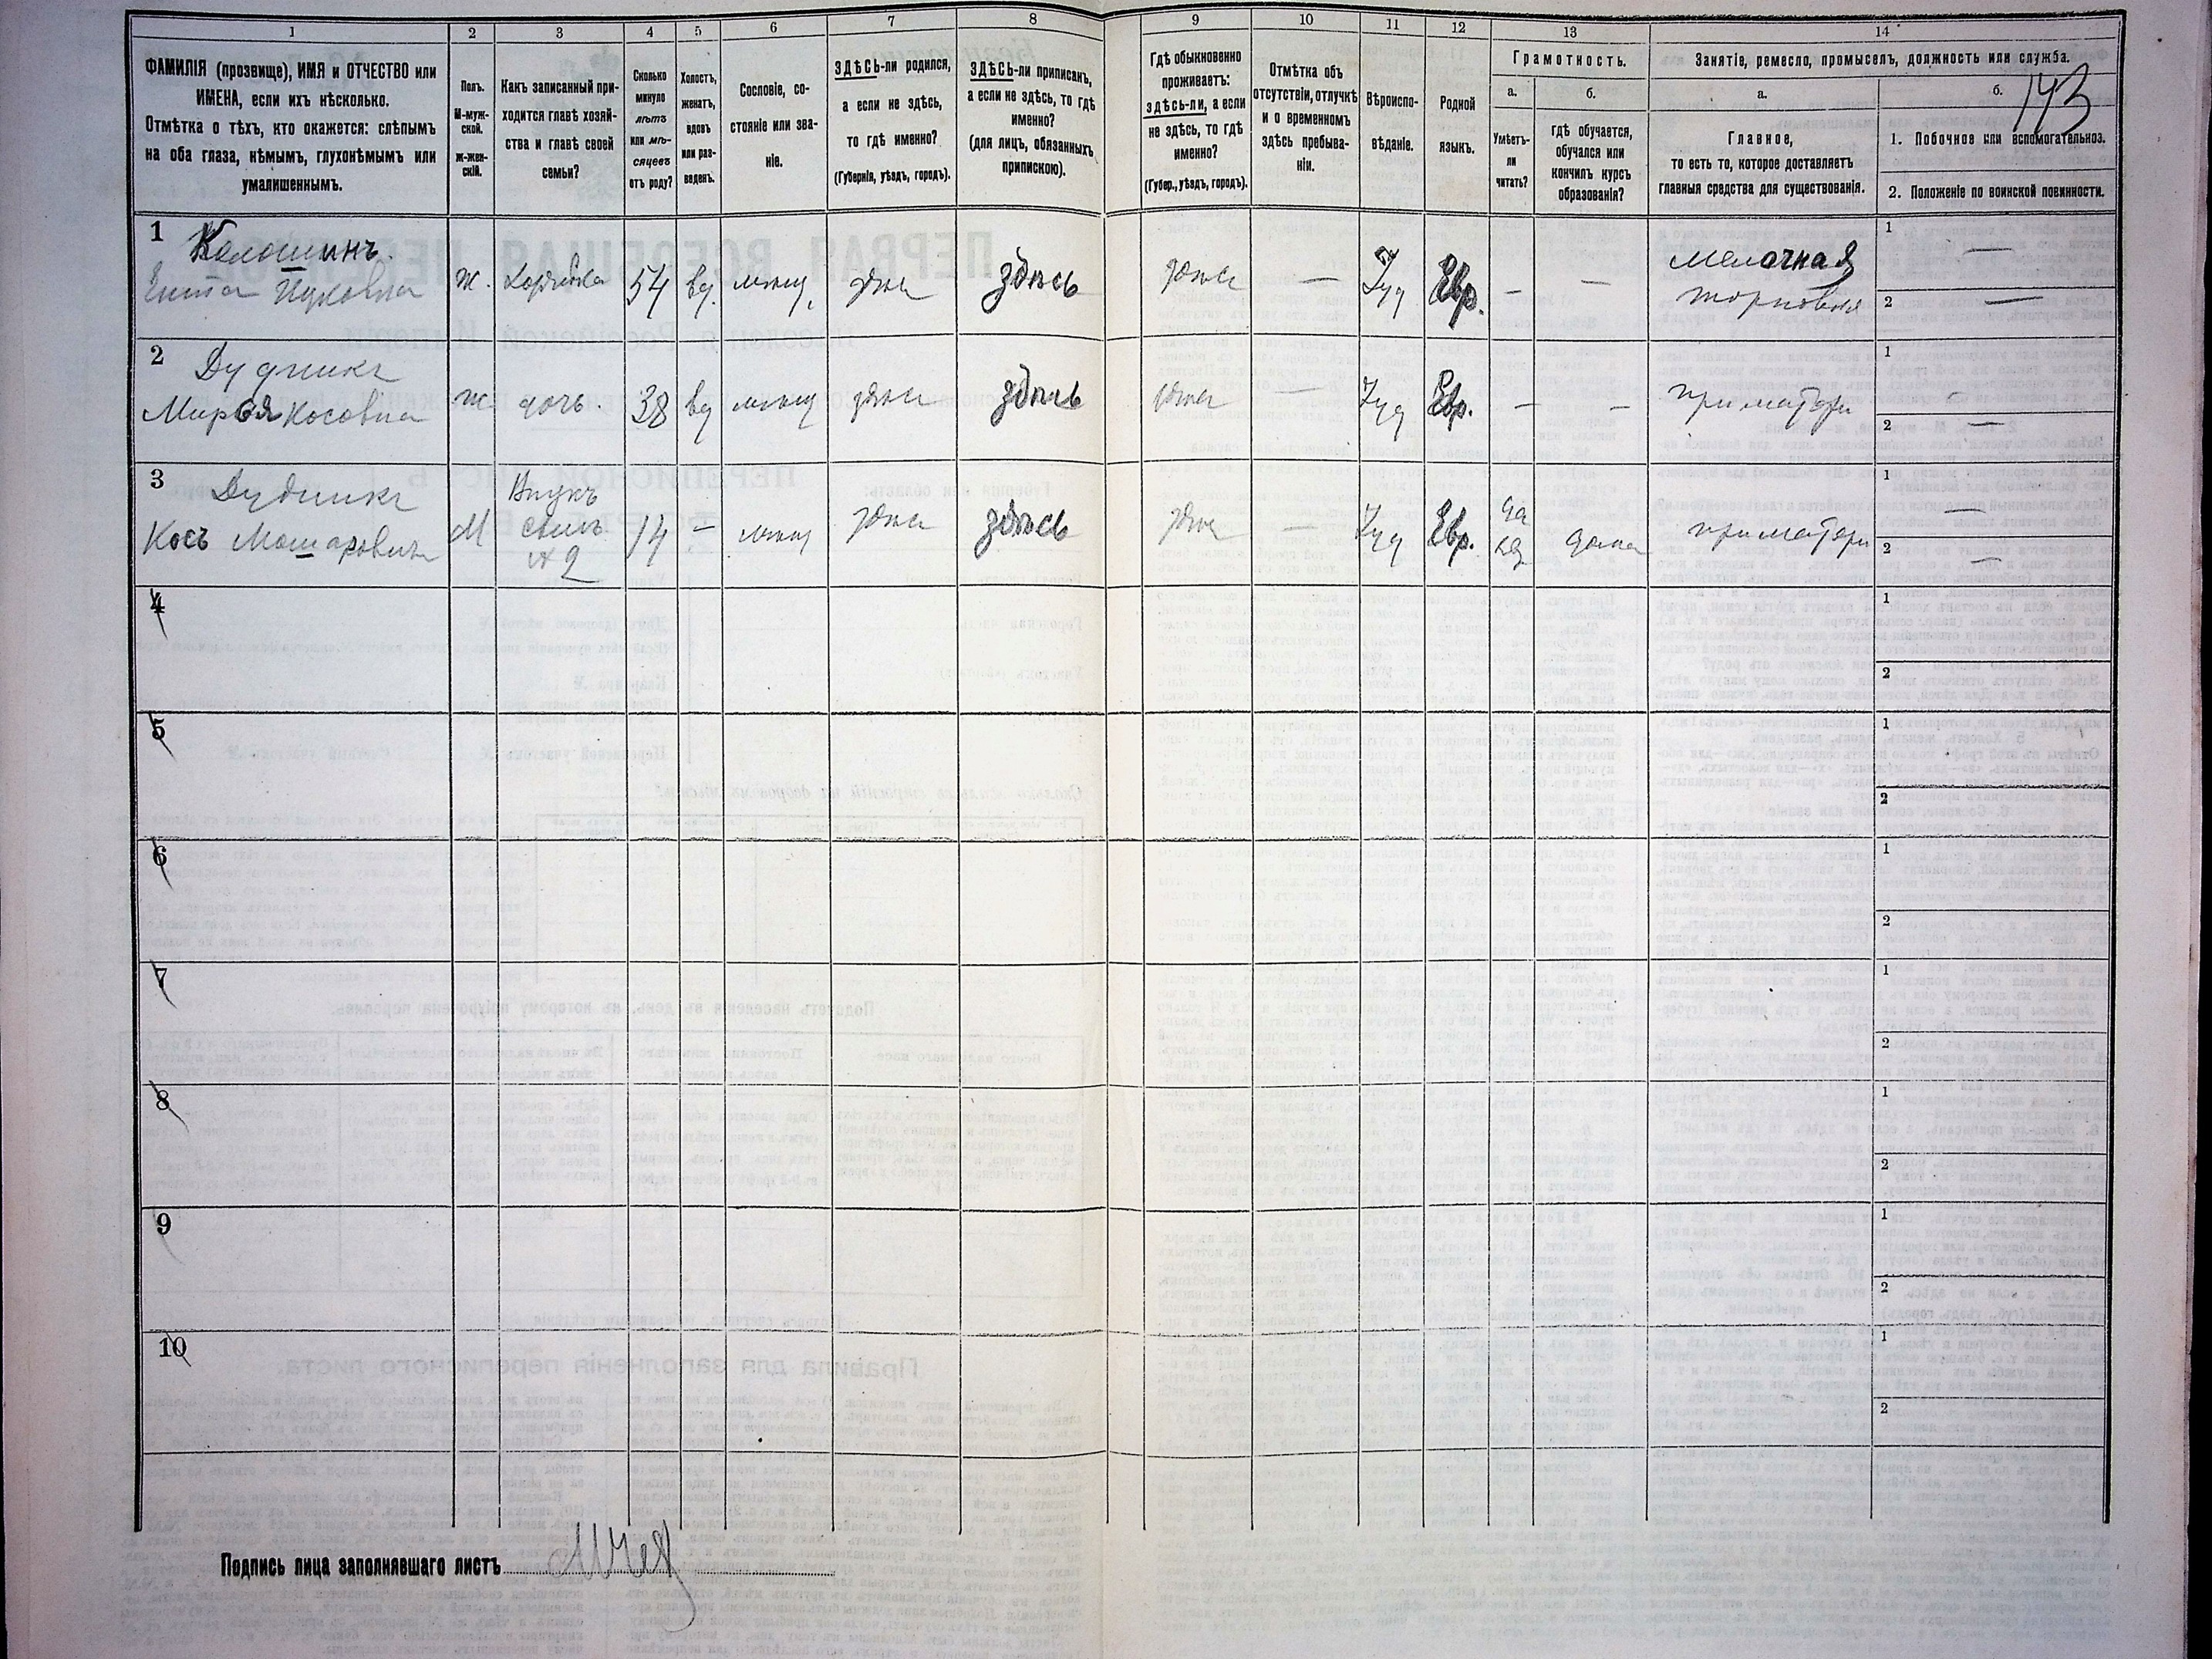 1 2 3 4 5 6 7 8 9 10 11 12 13 14
ФАМИЛІЯ (прозвище), ИМЯ и ОТЧЕСТВО или
ИМЕНА, если ихъ нѣсколько.
Отмѣтка о тѣхъ, кто окажется: слѣпымъ
на оба глаза, нѣмымъ, глухонѣмымъ или
умалишеннымъ.
Полъ.
М-муж-
ской.
ж-жен-
скій.
Какъ записанный при-
ходится главѣ хозяй-
ства и главѣ своей
семьи?
Сколько
минуло
лѣтъ
или мѣ-
сяцевъ
отъ роду?
Холостъ,
женатъ,
вдовъ
или раз-
веденъ.
Сословіе, со-
стояніе или зва-
ніе.
ЗДѢСЬ-ли родился,
а если не здѣсь,
то гдѣ именно?
(Губернія, уѣздъ, городъ).
ЗДѢСЬ-ли приписанъ,
а если не здѣсь, то гдѣ
именно?
(для лицъ, обязанныхъ
припискою).
Гдѣ обыкновенно
проживаетъ:
здѣсь-ли, а если
не здѣсь, то гдѣ
именно?
(Губер., уѣздъ, городъ).
Отмѣтка объ
отсутствіи, отлучкѣ
и о временномъ
здѣсь пребыва-
ніи.
Вѣроиспо-
вѣданіе.
Родной
языкъ.
Грамотность.
а.
Умѣетъ-
ли
читать?
б.
гдѣ обучается,
обучался или
кончилъ курсъ
образованія?
Занятіе, ремесло, промыселъ, должность или служба.
а.
Главное,
то есть то, которое доставляетъ
главныя средства для существованія.
б. 143
1. Побочное или вспомогательное.
2. Положеніе по воинской повинности.
1 Калошинъ
ж. 54 вд. здѣсь Іуд Евр. — — мелочная
торговля
1 —
2 —
2 Дудника
ж дочь. 38 вд здѣсь здѣсь здѣсь — Іуд Евр. — — при матери
1 —
2 —
3 Дудника
Внукъ
сынъ
№ 2
М 14 — здѣсь здѣсь здѣсь — Іуд Евр. да дома при матери
1 —
2 —
4 1
2
5 1
2
6 1
2
7 1
2
8 1
2
9 1
2
10 1
2
Подпись лица заполнявшаго листъ